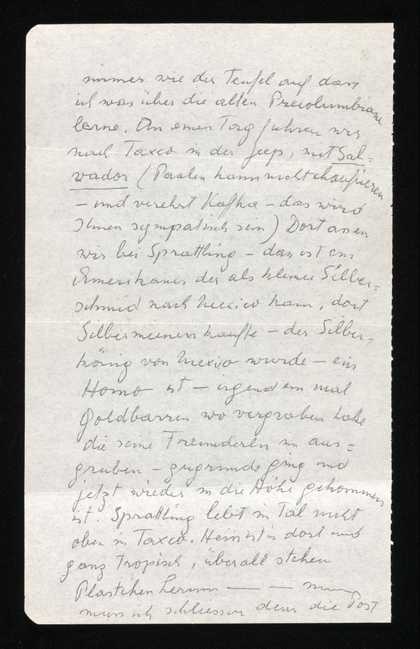 immer wie der Teufel auf dass
ich was über die alten Precolumbiane
lerne. An einem Tag fuhren wir
nach Taxco in der Jeep, mit Sal-
vador (Paalen kann nicht chaufieren
– und verehrt Kafka – das wird
Ihnen sympatisch sein) Dort assen
wir bei Spratling – das ist ein
Amerikaner der als kleiner Silber-
schmid nach Mexico kam, dort
Silberminen kaufte – der Silber-
könig von Mexico wurde – ein
Homo ist – irgend ein mal
Goldbarren wo vergraben habe
die seine Freunde
graben – zugrunde ging und
jetzt wieder in die Höhe gekommen
ist. Spratling lebt im Tal nicht
oben in Taxco. Heiss ist's dort und
ganz tropisch, überall stehen
Plastiken herum — — nun
muss ich schliessen denn die Post